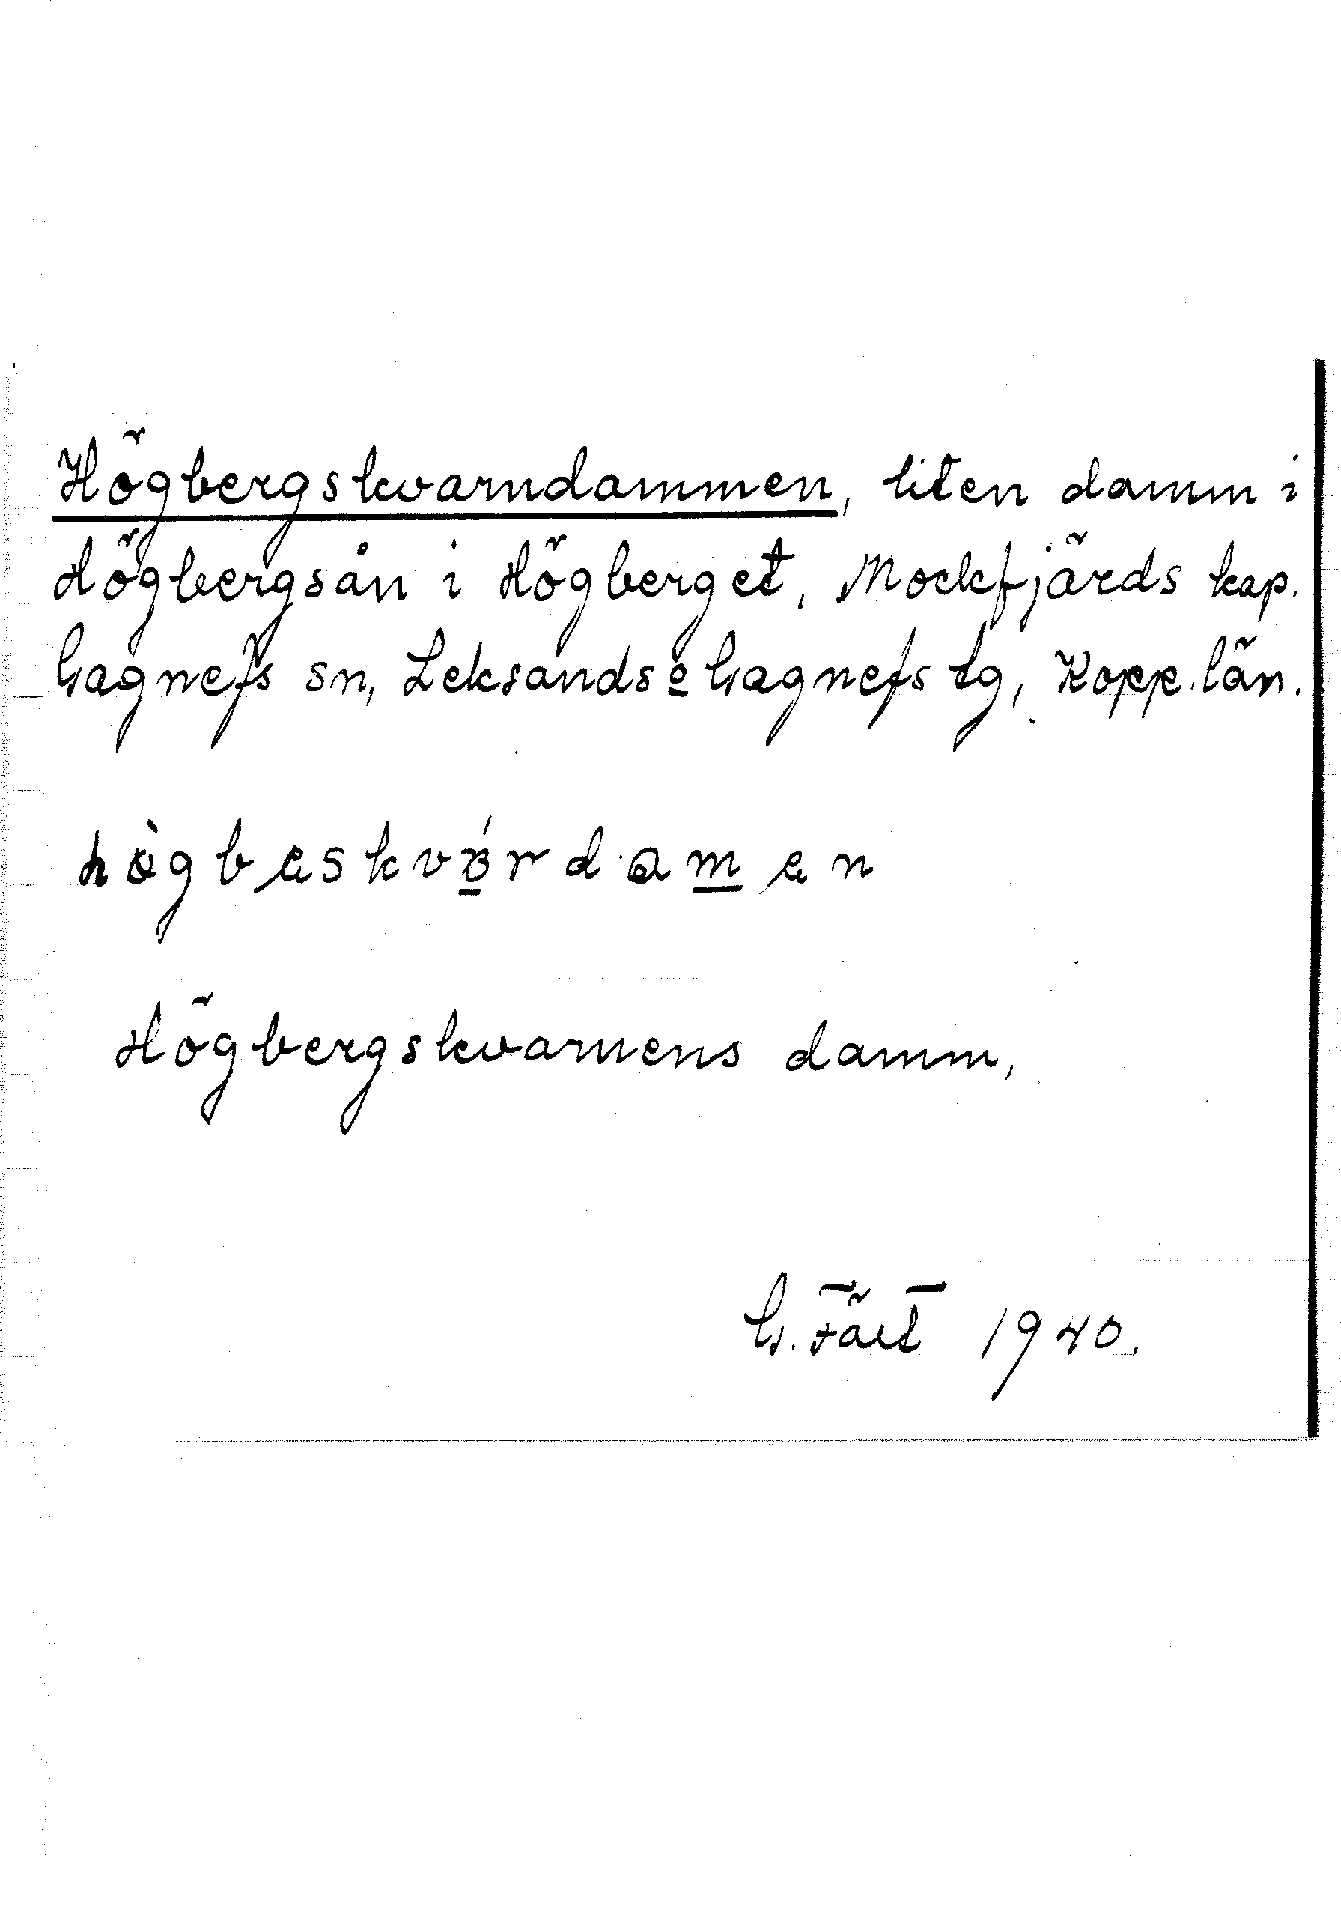 Högbergskvarndammen, liten damm i
Högbergsån i Högberget, Mockfjärds kap.
Gagnefs sn, Leksands o Gagnefs tg, Kopp. län.
högbeskvórdamen
Högbergskvarnens damm,
G. Fält 1940.